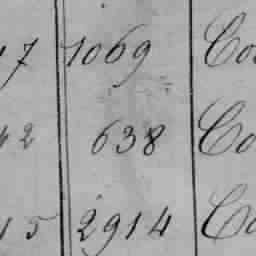 17 1069 Co
62 638 Co
15 2914 Co